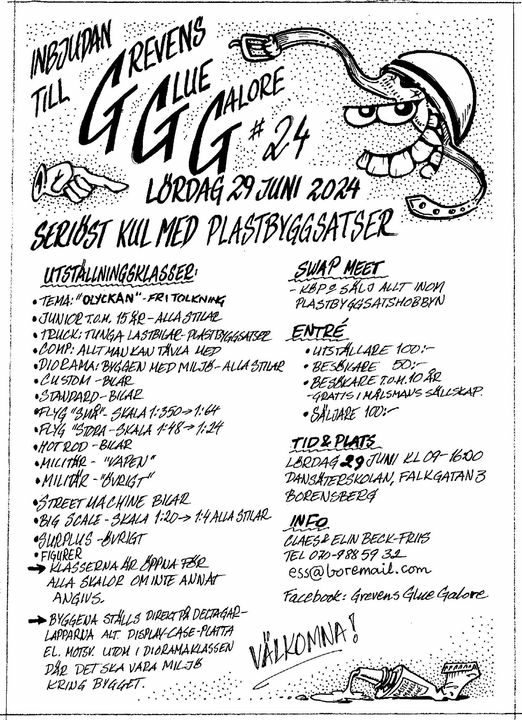 INBJUDAN
TILL
GREVENS
GLUE
GALORE
#24
LÖRDAG 29 JUNI 2024
SERIÖST KUL MED PLASTBYGGSATSER
UTSTÄLLNINGSKLASSER:
• TEMA: "OLYCKAN" - FRI TOLKNING
• JUNIOR T.O.M. 15 ÅR - ALLA STILAR
• TRUCK: TUNGA LASTBILAR - PLASTBYGGSATSER
• COMP: ALLT MAN KAN TÄVLA MED
• DIORAMA: BYGGEN MED MILJÖ - ALLA STILAR
• CUSTOM - BILAR
• STANDARD - BILAR
• FLYG "SMÅ" - SKALA 1:350 → 1:64
• FLYG "STORA" - SKALA 1:48 → 1:24
• HOT ROD - BILAR
• MILITÄR - "VAPEN"
• MILITÄR - "ÖVRIGT"
• STREET MACHINE BILAR
• BIG SCALE - SKALA 1:20 → 1:4 ALLA STILAR
• SURPLUS - ÖVRIGT
• FIGURER
→ KLASSERNA ÄR ÖPPNA FÖR
ALLA SKALOR OM INTE ANNAT
ANGIVS.
→ BYGGENA STÄLLS DIREKT PÅ DELTAGAR-
LAPPARNA ALT. DISPLAY-CASE-PLATTA
EL. MOTSV. UTOM I DIORAMAKLASSEN
DÄR DET SKA VARA MILJÖ
KRING BYGGET.
SWAP MEET
- KÖP & SÄLJ ALLT INOM
PLASTBYGGSATSHOBBYN
ENTRÉ
• UTSTÄLLARE 100:-
• BESÖKARE 50:-
• BESÖKARE T.O.M. 10 ÅR
- GRATIS I MÅLSMANS SÄLLSKAP.
• SÄLJARE 100:-
TID & PLATS
LÖRDAG 29 JUNI KL 09-16:00
DANSÄTERSKOLAN, FALKGATAN 3
BORENSBERG
INFO
CLAES & ELIN BECK-FRIIS
TEL 070-988 59 32
ess@boremail.com
Facebook: Grevens Glue Galore
VÄLKOMNA!